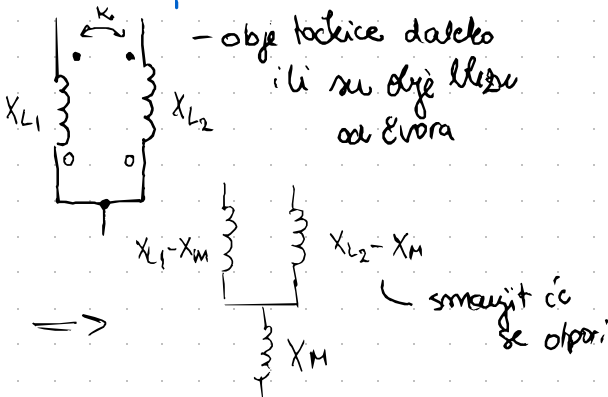 K
- obje točkice daleko
ili su obje blizu
od čvora
X_L1
X_L2
X_L1 - X_M
X_L2 - X_M
smanjit će
se otpori
=>
X_M